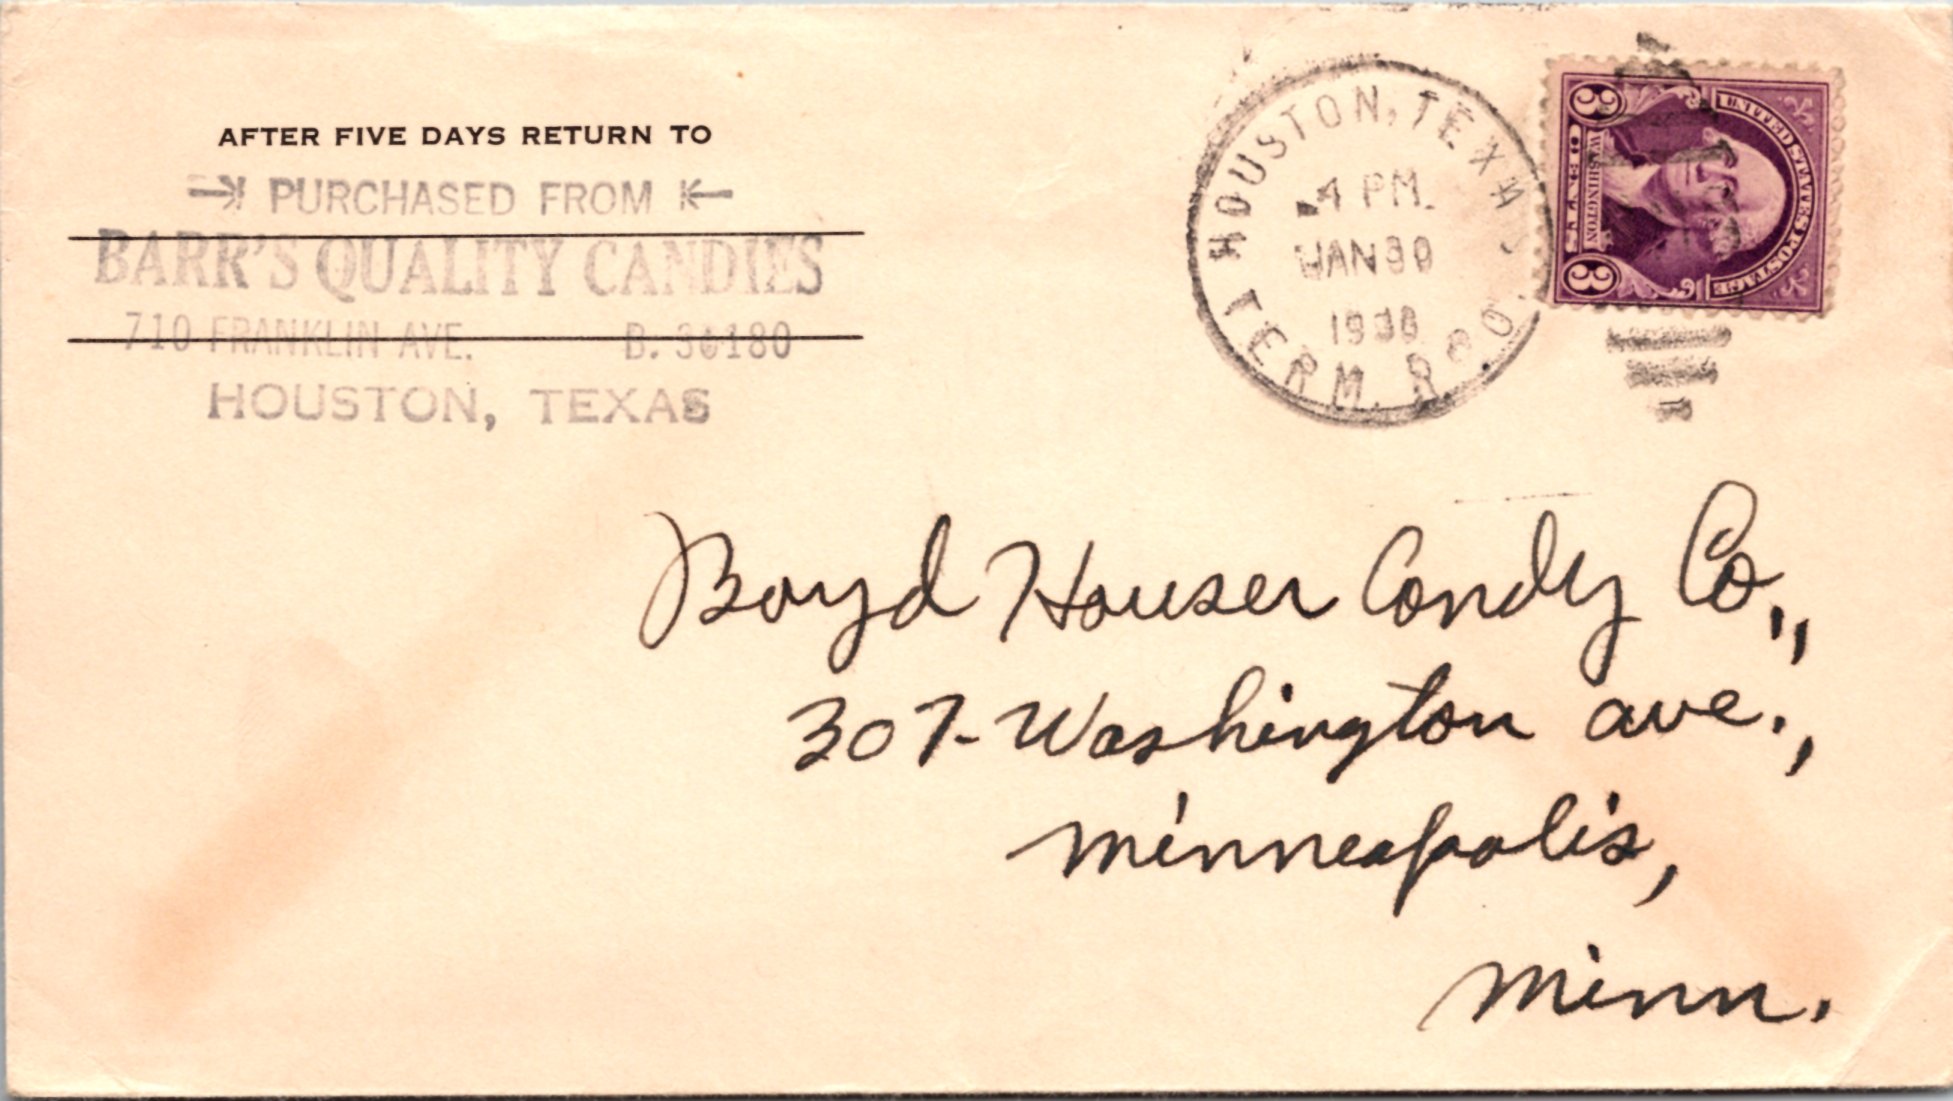 AFTER FIVE DAYS RETURN TO
PURCHASED FROM
BARR'S QUALITY CANDIES
710 FRANKLIN AVE. B. 36180
HOUSTON, TEXAS
HOUSTON, TEXAS
4 PM
JAN 30
1938
TERM. R.P.O.
UNITED STATES POSTAGE
WASHINGTON
3 CENTS 3
Boyd Houser Candy Co.,
307- Washington ave.,
Minneapolis,
Minn.